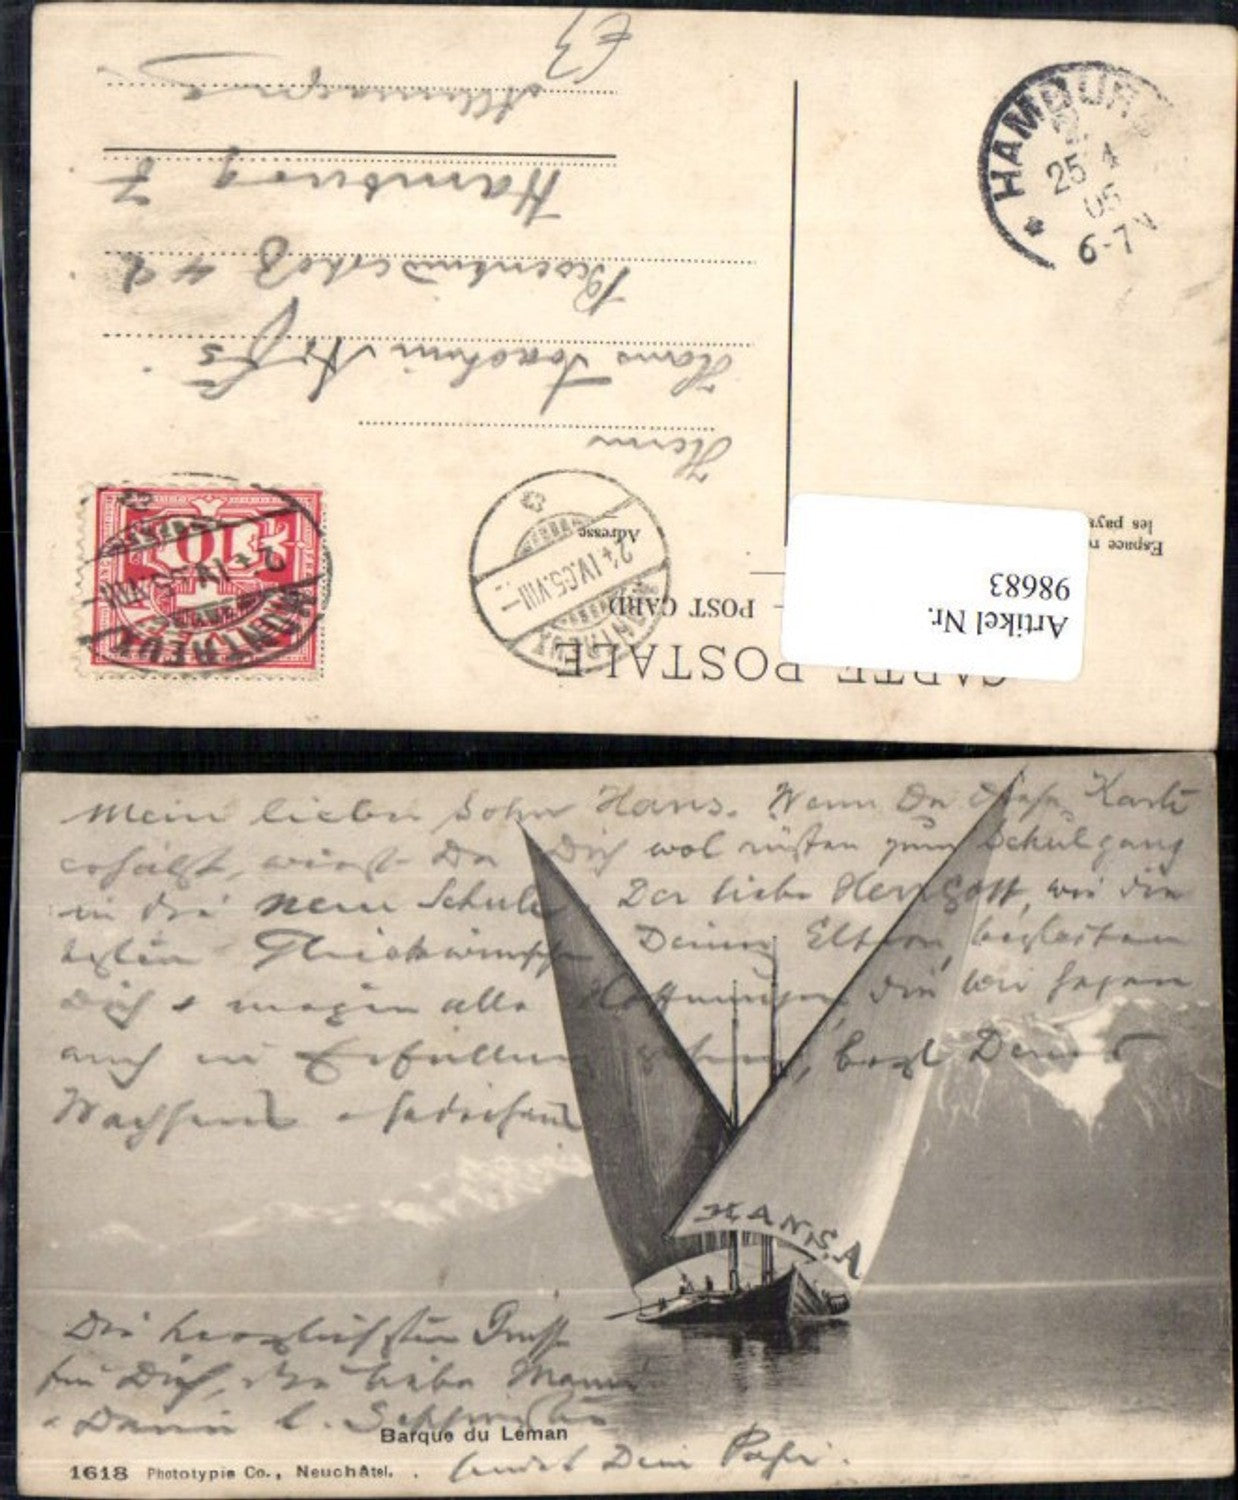 CARTE POSTALE
POST CARD
Espace r
les pays
Adresse
Artikel Nr.
98683
MONTREUX
24.IV.05.VIII
10
MONTREUX
24.IV.05.VIII
Herrn
Hans Joachim
42
Hamburg 7
Allemagne
HAMBURG
25 4
05
6-7 N
Mein lieber Sohn Hans. Wenn Du diese Karte
erhälst, wirst Du Dich wol rüsten zum Schulgang
in die neue Schule. Der liebe Herrgott, wie die
besten Glückwünsche Deiner Eltern, begleiten
Dich & mögen alle Hoffnungen, die wir hegen
auch in Erfüllung gehen, bezl. Deines
Wachsens &
HANS. A
Die herzlichsten Grüsse
für Dich, die liebe Mama
& Deine l. Schwester
sendet Dein Papa.
Barque du Léman
1618 Phototypie Co., Neuchâtel.